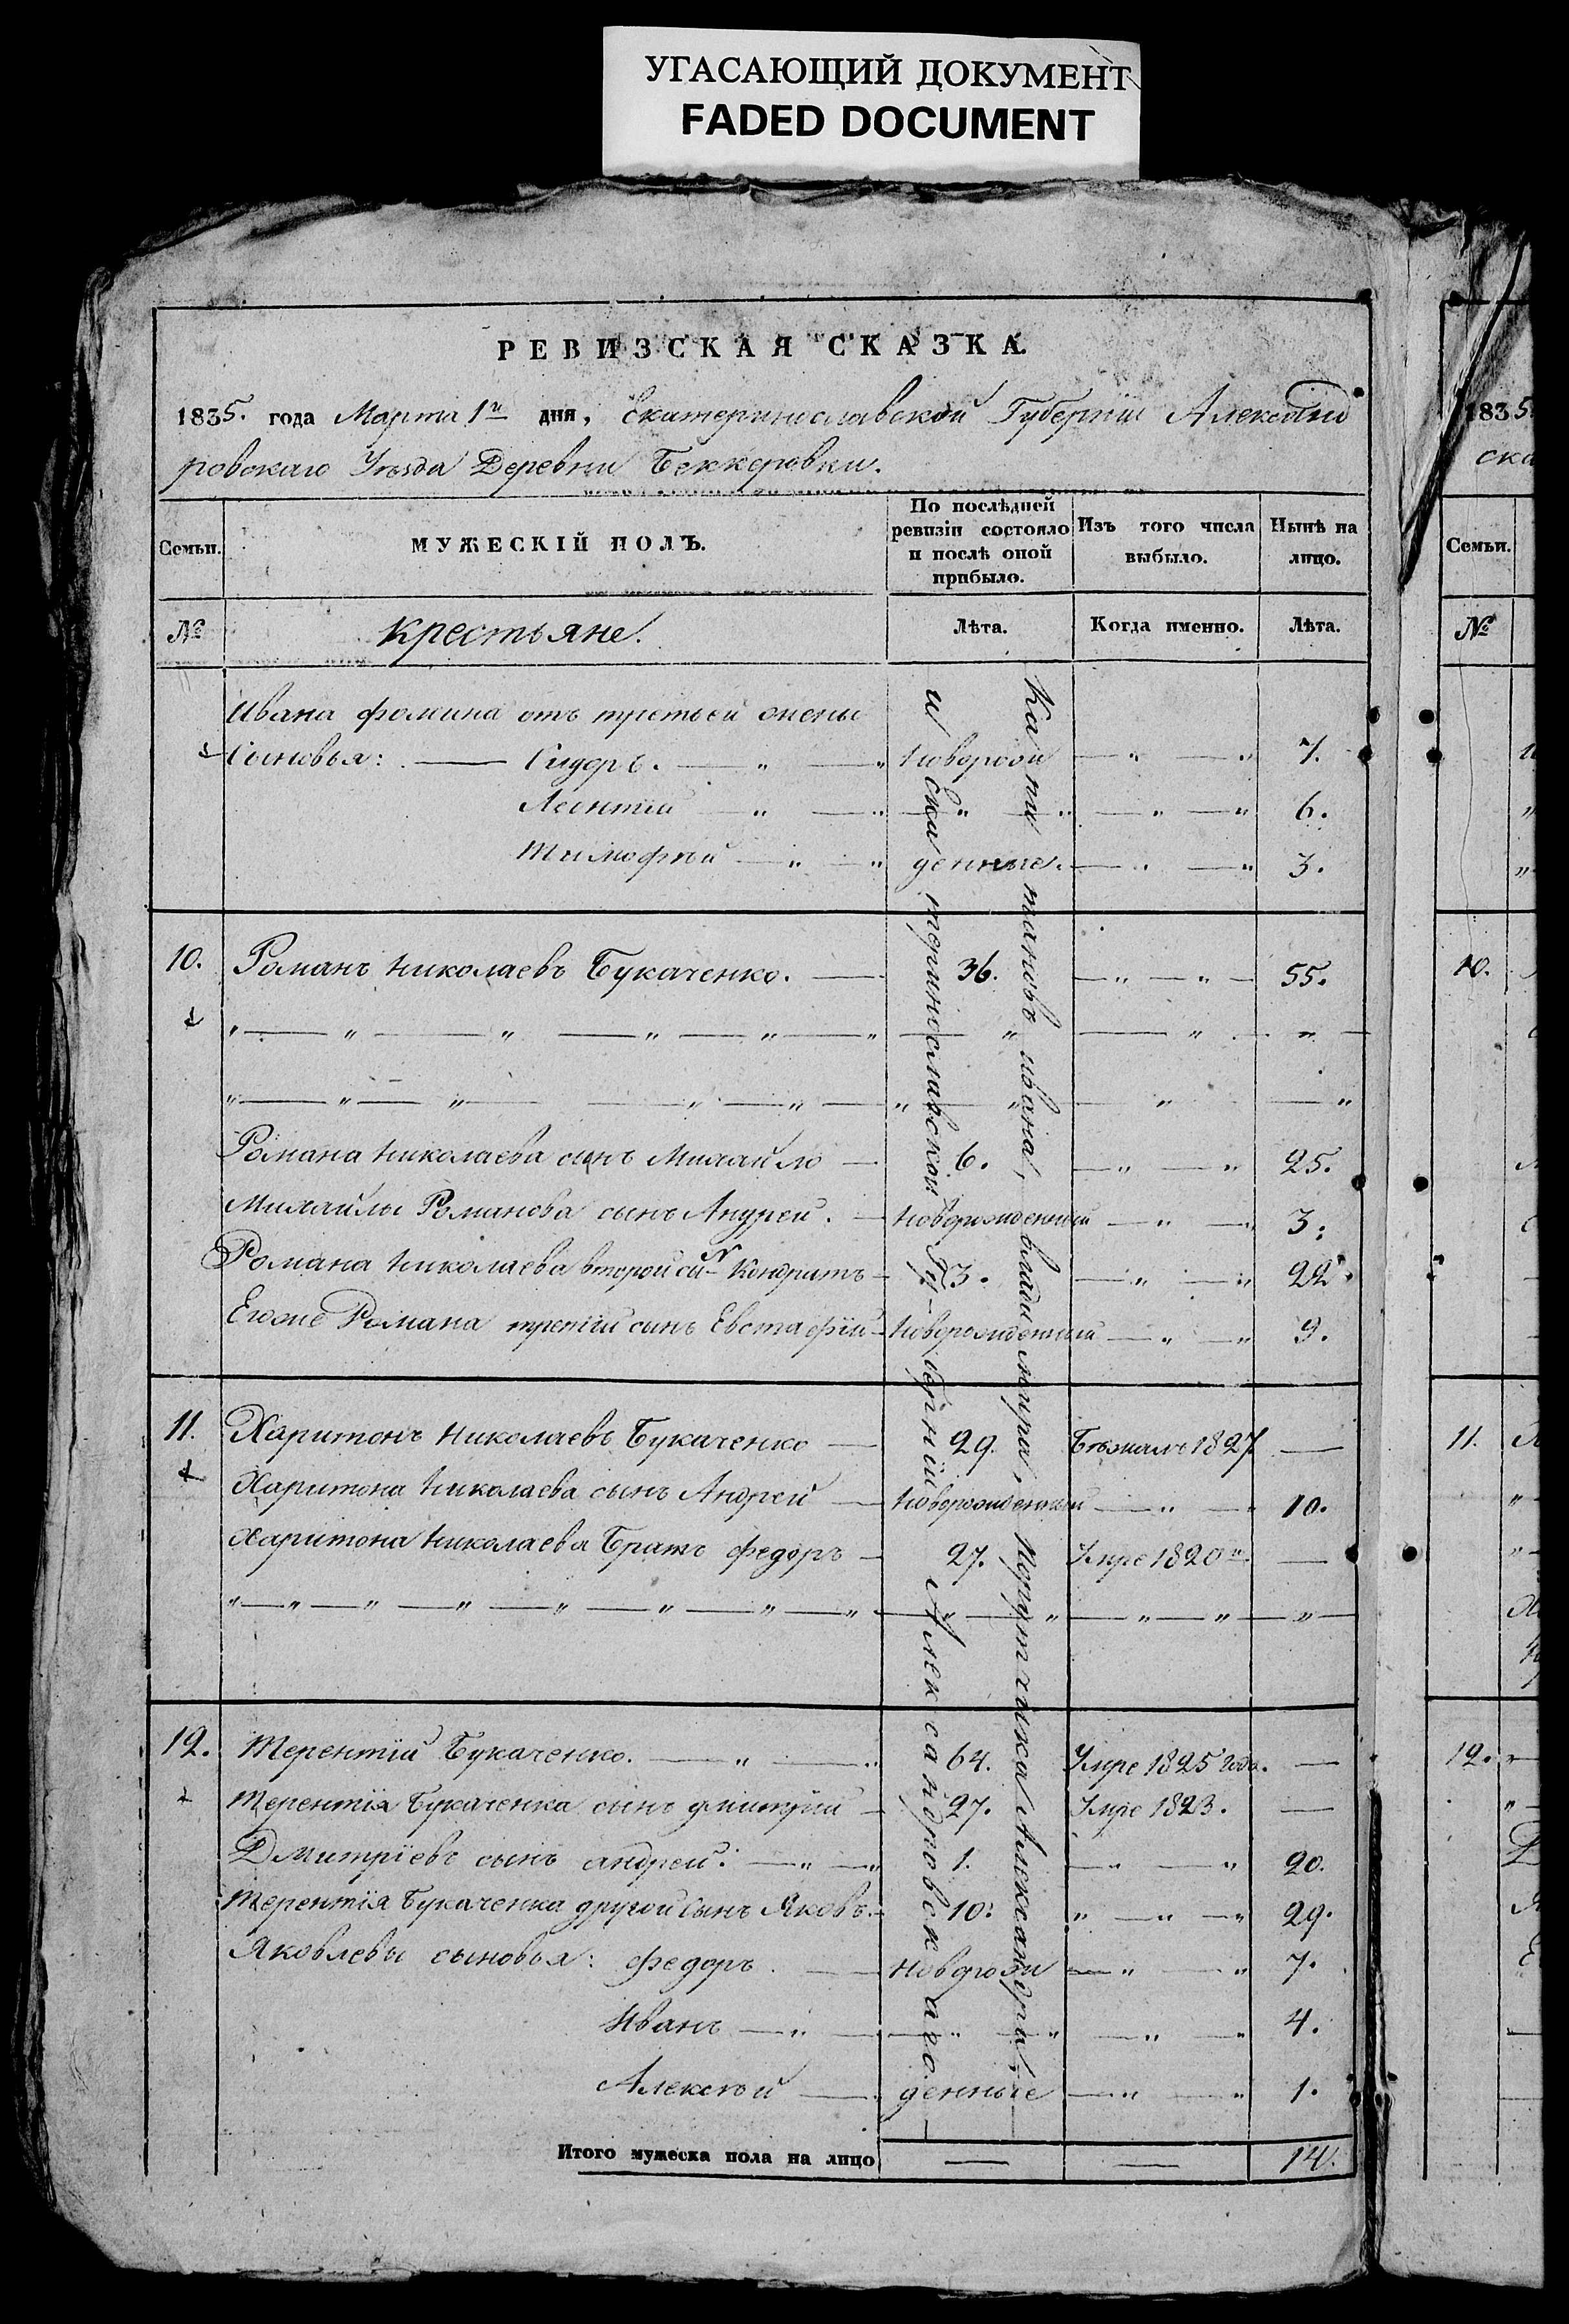 УГАСАЮЩИЙ ДОКУМЕНТ
FADED DOCUMENT
РЕВИЗСКАЯ СКАЗКА.
1835. года Марта 1го дня, Екатеринославской Губернии Александ
ровскаго Уезда Деревни Беккеровки.
Семьи.
МУЖЕСКІЙ ПОЛЪ.
По послѣдней ревизіи состояло и послѣ оной прибыло.
Изъ того числа выбыло.
Нынѣ на лицо.
№
Крестьяне.
Лѣта.
Когда именно.
Лѣта.
Ивана Фомина отъ третьей жены
Сыновья: — Сидоръ. — " — " новорож — " — " 7.
Леонтій — " — " — " — " — " — " 6.
Тимофѣй — " — " денные. — " — " 3.
10. Романъ Николаевъ Букаченко. — 36. — " — " — 55.
Романа Николаева сынъ Михайло — 6. — " — " 25.
Михайлы Романова сынъ Андрей. — новорожденный — " — " 3.
Романа Николаева второй сынъ Кондратъ — 3. — " — " 22.
Егоже Романа третій сынъ Евстафій — новорожденный — " — " 9.
11. Харитонъ Николаевъ Букаченко — 29. Бѣжалъ 1827. —
Харитона Николаева сынъ Андрей — новорожденный — " — " 10.
Харитона Николаева Братъ Федоръ — 27. Умре 1820го. —
12. Терентій Букаченко. — " — " 64. Умре 1825 года. —
Терентія Букаченка сынъ Дмитрій — 27. Умре 1823. —
Дмитріевъ сынъ Андрей. — " — " 1. — " — " 20.
Терентія Букаченка другой сынъ Яковъ. — 10. " — " — " 29.
Яковлевы сыновья: Федоръ. — новорож — " — " 7.
Иванъ — " — " — " — " — " 4.
Алексѣй — денные — " — " 1.
Итого мужеска пола на лицо — — 14.
Капитановъ Ивана, Владимира, Порутчика Александра,
и Екатеринославской Губерніи Александровскаго
1835
ска
Семьи.
№
10.
11.
12.